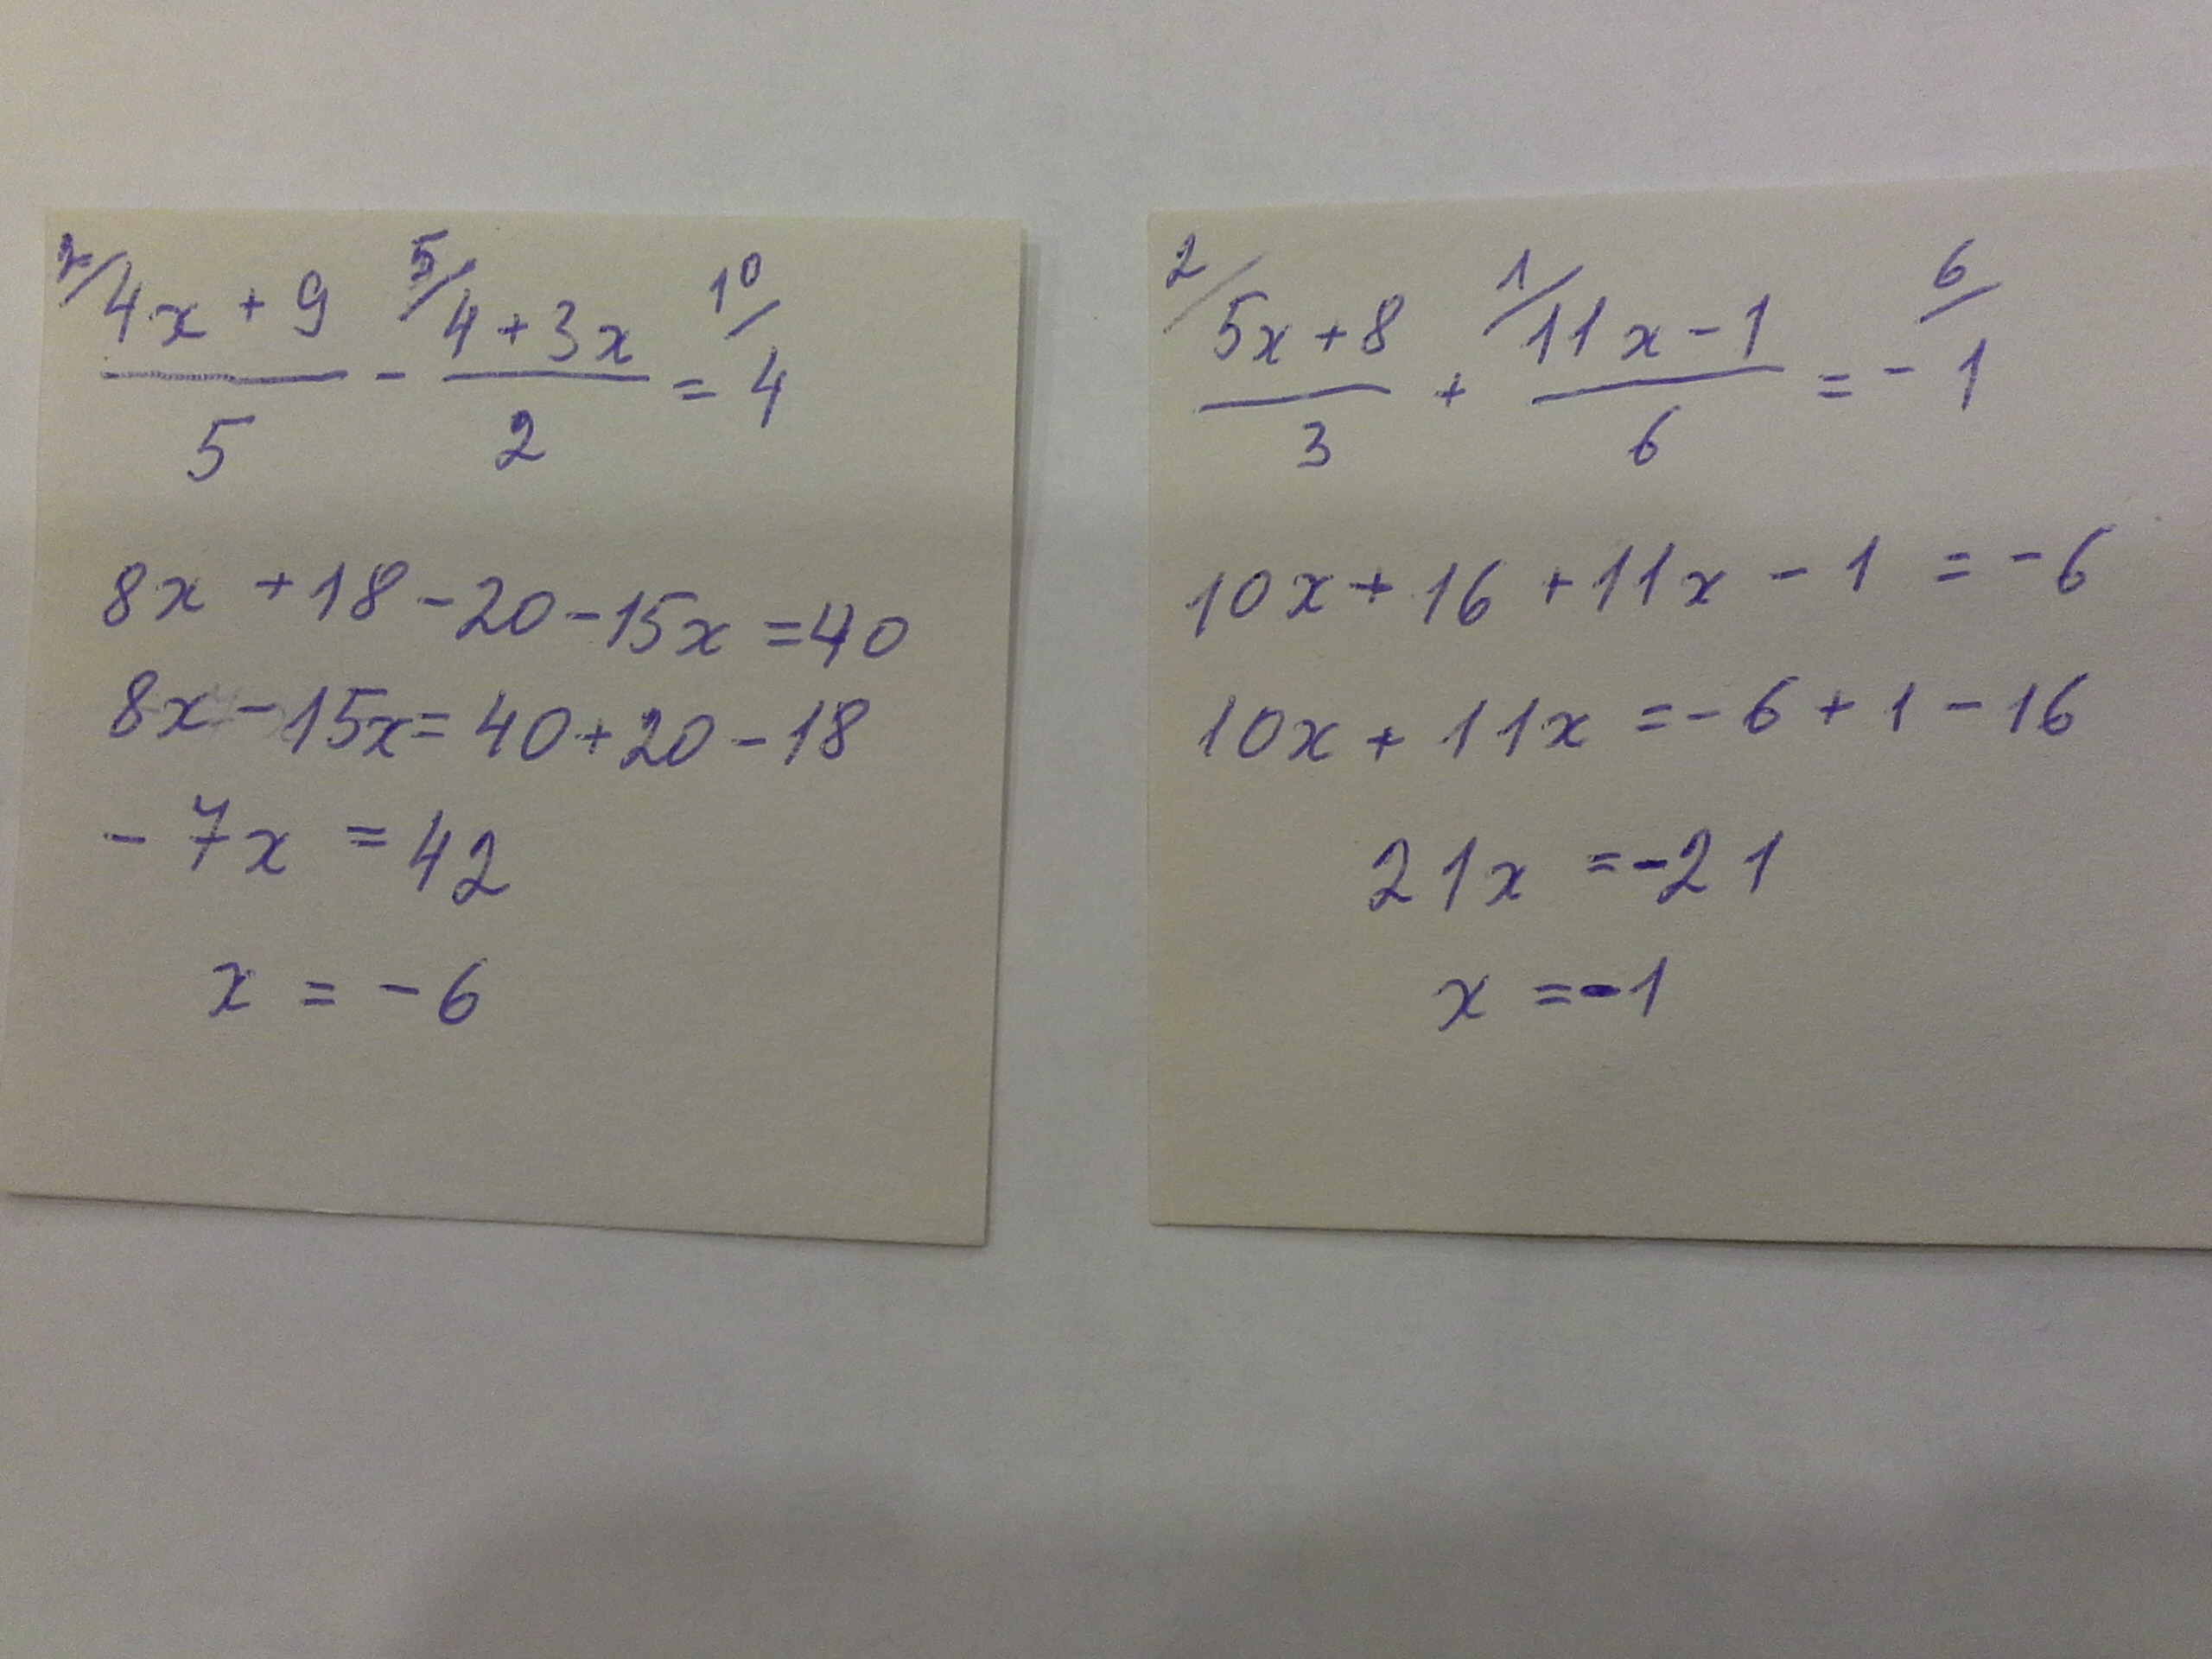 2/ 5/ 10/
4x + 9 4 + 3x
— - — = 4
5 2
8x + 18 - 20 - 15x = 40
8x - 15x = 40 + 20 - 18
- 7x = 42
x = - 6
2/ 1/ 6/
5x + 8 11x - 1
— + — = - 1
3 6
10x + 16 + 11x - 1 = - 6
10x + 11x = - 6 + 1 - 16
21x = - 21
x = - 1